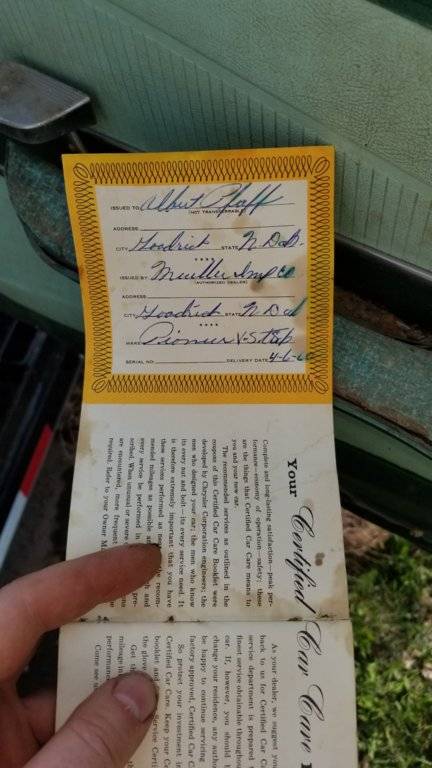 ISSUED TO Albert Pfaff
(NOT TRANSFERRABLE)
ADDRESS
CITY Goodrich STATE N. Dak.
****
ISSUED BY Mueller Imp Co
(AUTHORIZED DEALER)
ADDRESS
CITY Goodrich STATE N Dak
****
MAKE Pioneer V-8
SERIAL NO. DELIVERY DATE 4-6-60
Your Certified Car Care
Complete and long-lasting satisfaction—peak per-
formance—economy of operation—safety; these
are the things that Certified Car Care means to
you and your new car.
The recommended services as outlined in the
coupons of this Certified Car Care Booklet were
developed by Chrysler Corporation engineers; the
men who designed your car; the men who know
its every nut and bolt—its every service need. It
is therefore extremely important that you have
these services performed as the recom-
mended mileage as possible and
every service be performed in pre-
scribed. When unusual or seve
are encountered, more frequent
required. Refer to your Owner M
As your dealer, we suggest you
back to us for Certified Car C
service department is prepared
finest service obtainable through
car. If, however, you should
change your residence, any autho
be happy to continue servicing
factory approved, Certified Car C
So protect your investment in
Certified Car Care. Keep your Ce
booklet and Service Certi
the glove
Get th
mileage in
performance
Come see u